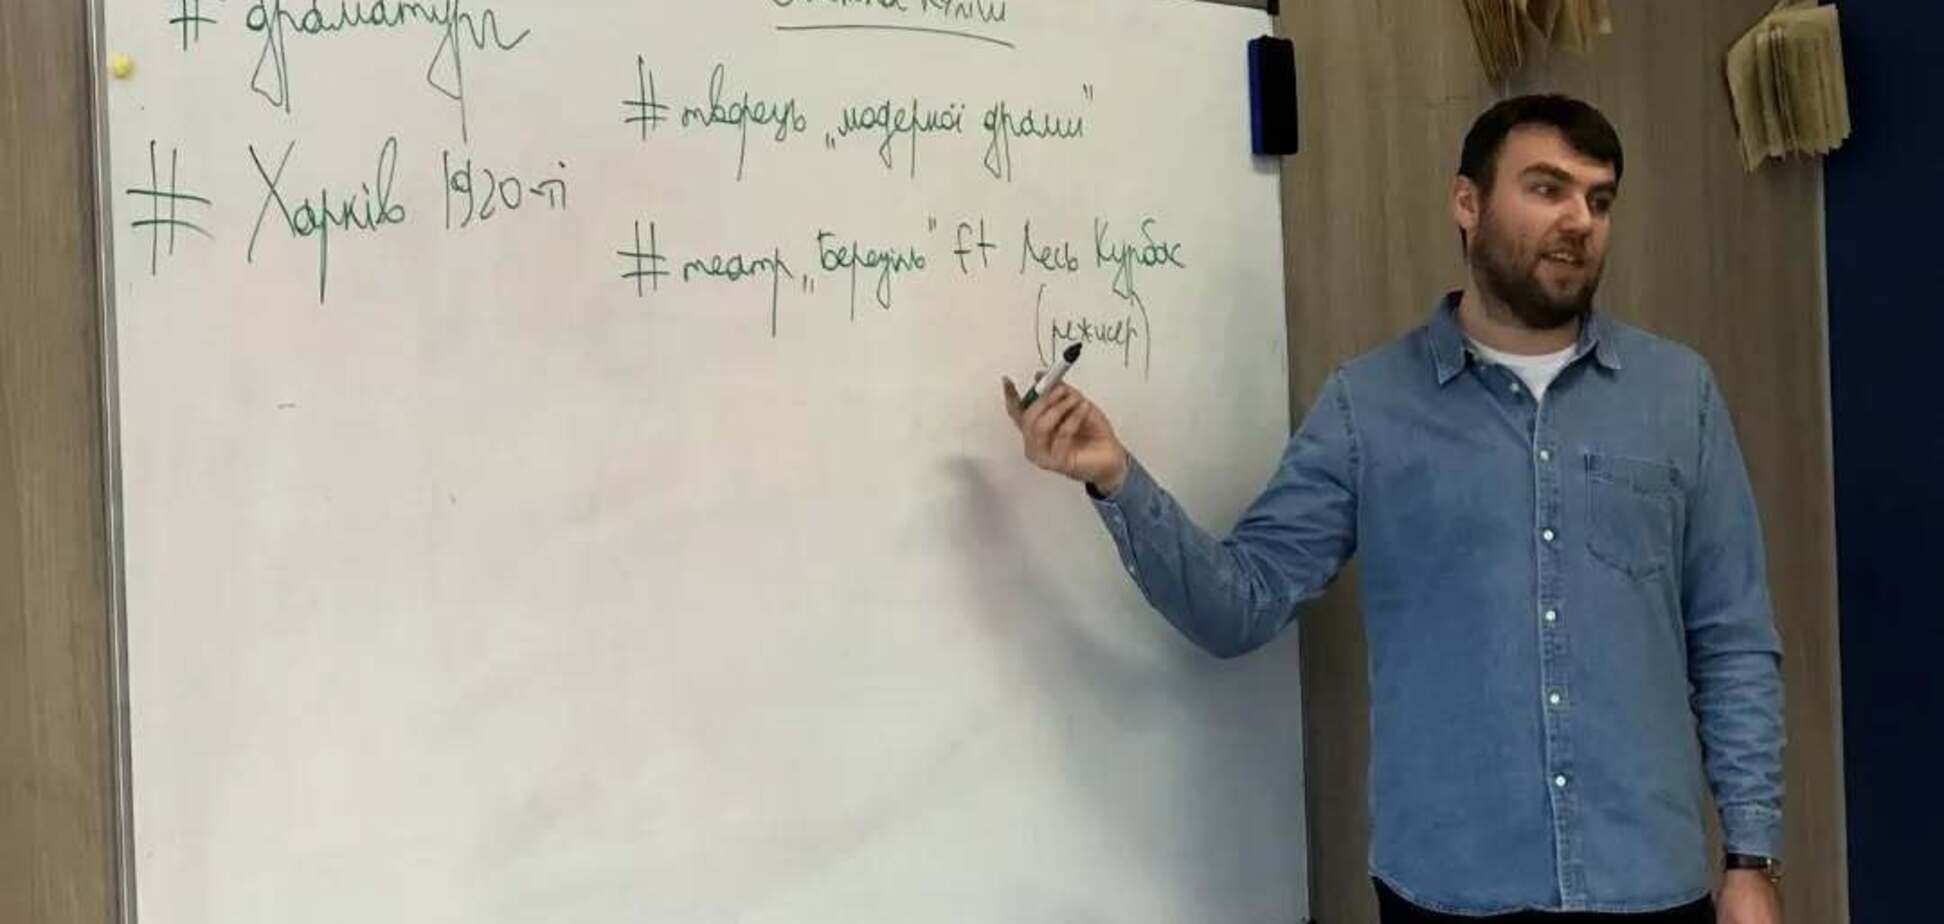 # драматург
Куліш
# творець „модерної драми"
# Харків 1920-ті
# театр „Березіль" ft Лесь Курбас
(режисер)